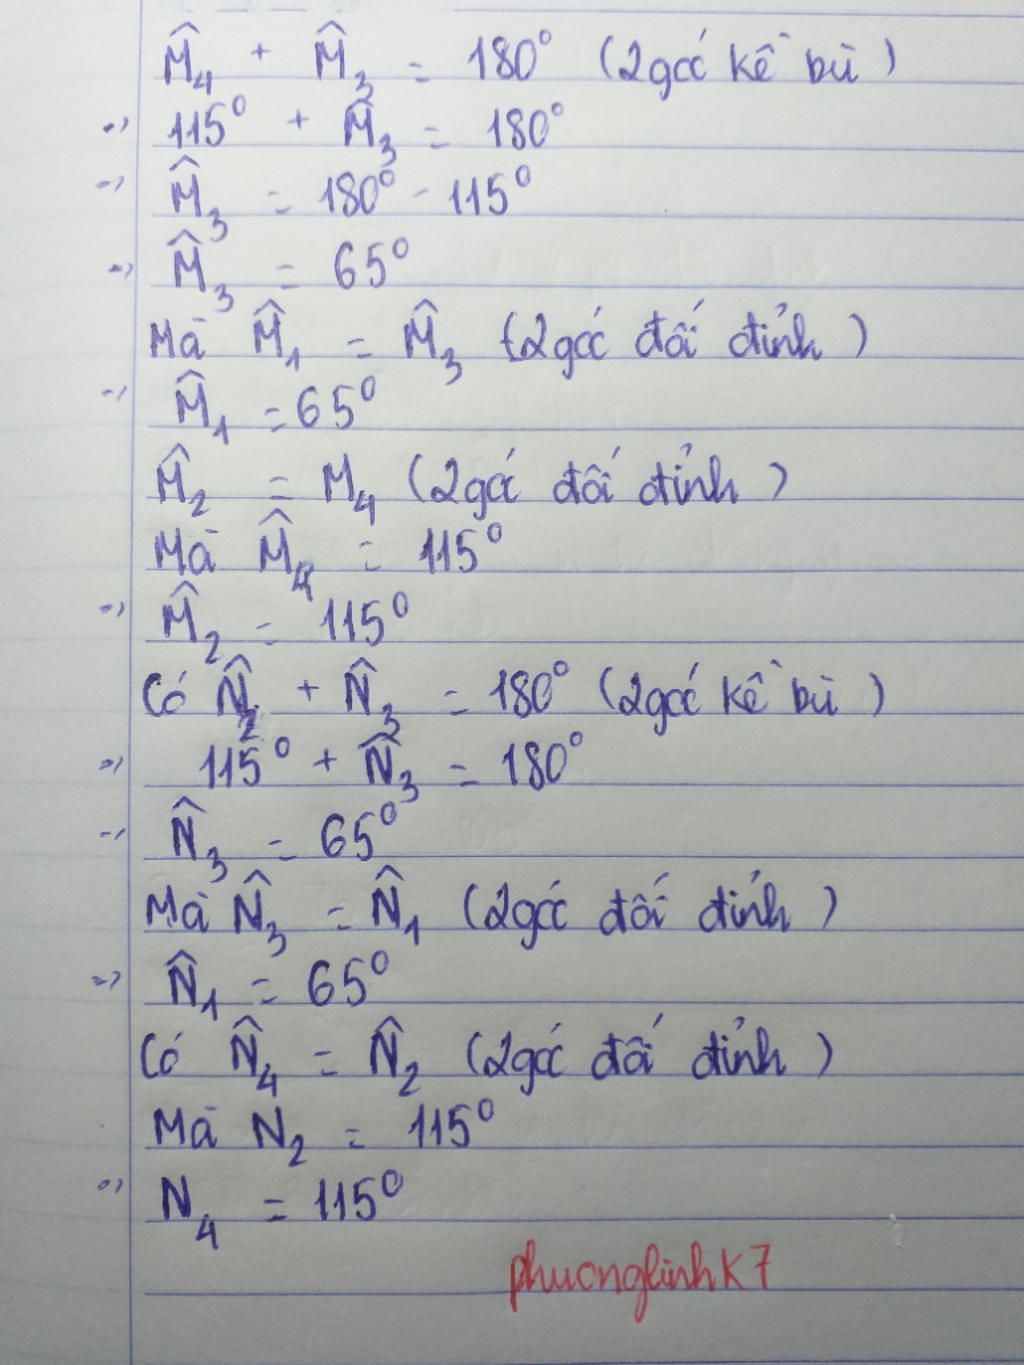 M̂₄ + M̂₃ = 180° (2góc kề bù)
=> 115° + M̂₃ = 180°
=> M̂₃ = 180° - 115°
=> M̂₃ = 65°
Mà M̂₁ = M̂₃ (2góc đối đỉnh)
=> M̂₁ = 65°
M̂₂ = M₄ (2góc đối đỉnh)
Mà M̂₄ = 115°
=> M̂₂ = 115°
Có N̂₂ + N̂₃ = 180° (2góc kề bù)
=> 115° + N̂₃ = 180°
=> N̂₃ = 65°
Mà N̂₃ = N̂₁ (2góc đối đỉnh)
=> N̂₁ = 65°
Có N̂₄ = N̂₂ (2góc đối đỉnh)
Mà N₂ = 115°
=> N₄ = 115°
phuonglinhk7